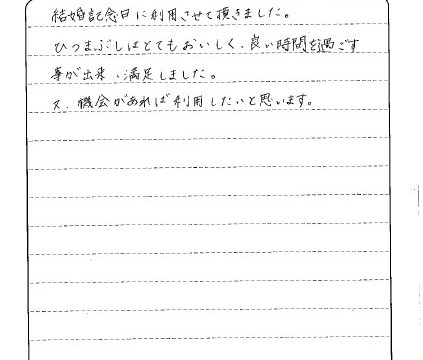 結婚記念日に利用させて頂きました。
ひつまぶしはとてもおいしく、良い時間を過ごす
事が出来、満足しました。
又、機会があれば利用したいと思います。